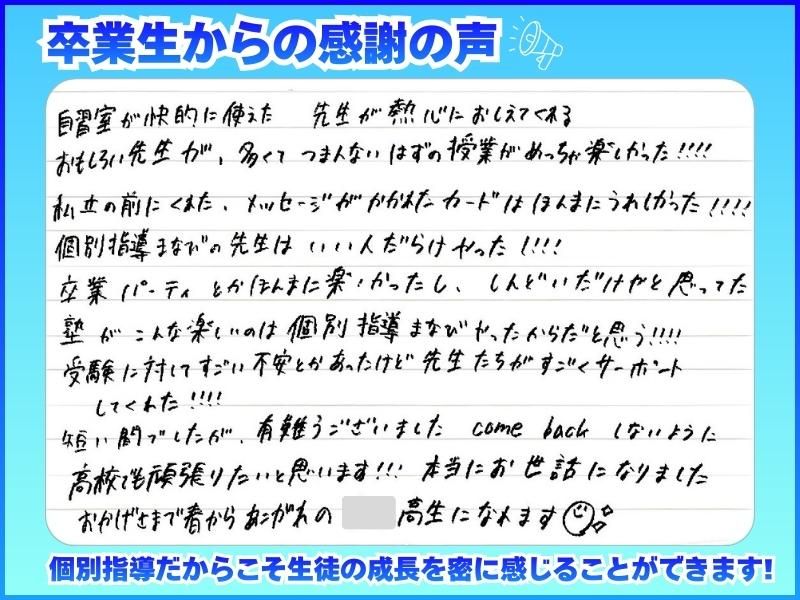 卒業生からの感謝の声
自習室が快的に使えた 先生が熱心におしえてくれる
おもしろい先生が、多くて つまんない はずの授業がめっちゃ楽しかった!!!!
私立の前にくれた、メッセージがかかれたカードは ほんまにうれしかった!!!!
個別指導まなびの先生は いい人だらけやった!!!!
卒業パーティとかほんまに楽しかったし、しんどいだけやと思ってた
塾がこんな楽しいのは個別指導まなびやったからだと思う!!!!
受験に対してすごい不安とかあったけど先生たちがすごくサーポート
してくれた!!!!
短い間でしたが、有難うございました come back しないように
高校でも頑張りたいと思います!!! 本当にお世話になりました
おかげさまで春からあこがれの 高生になれます
個別指導だからこそ生徒の成長を密に感じることができます!